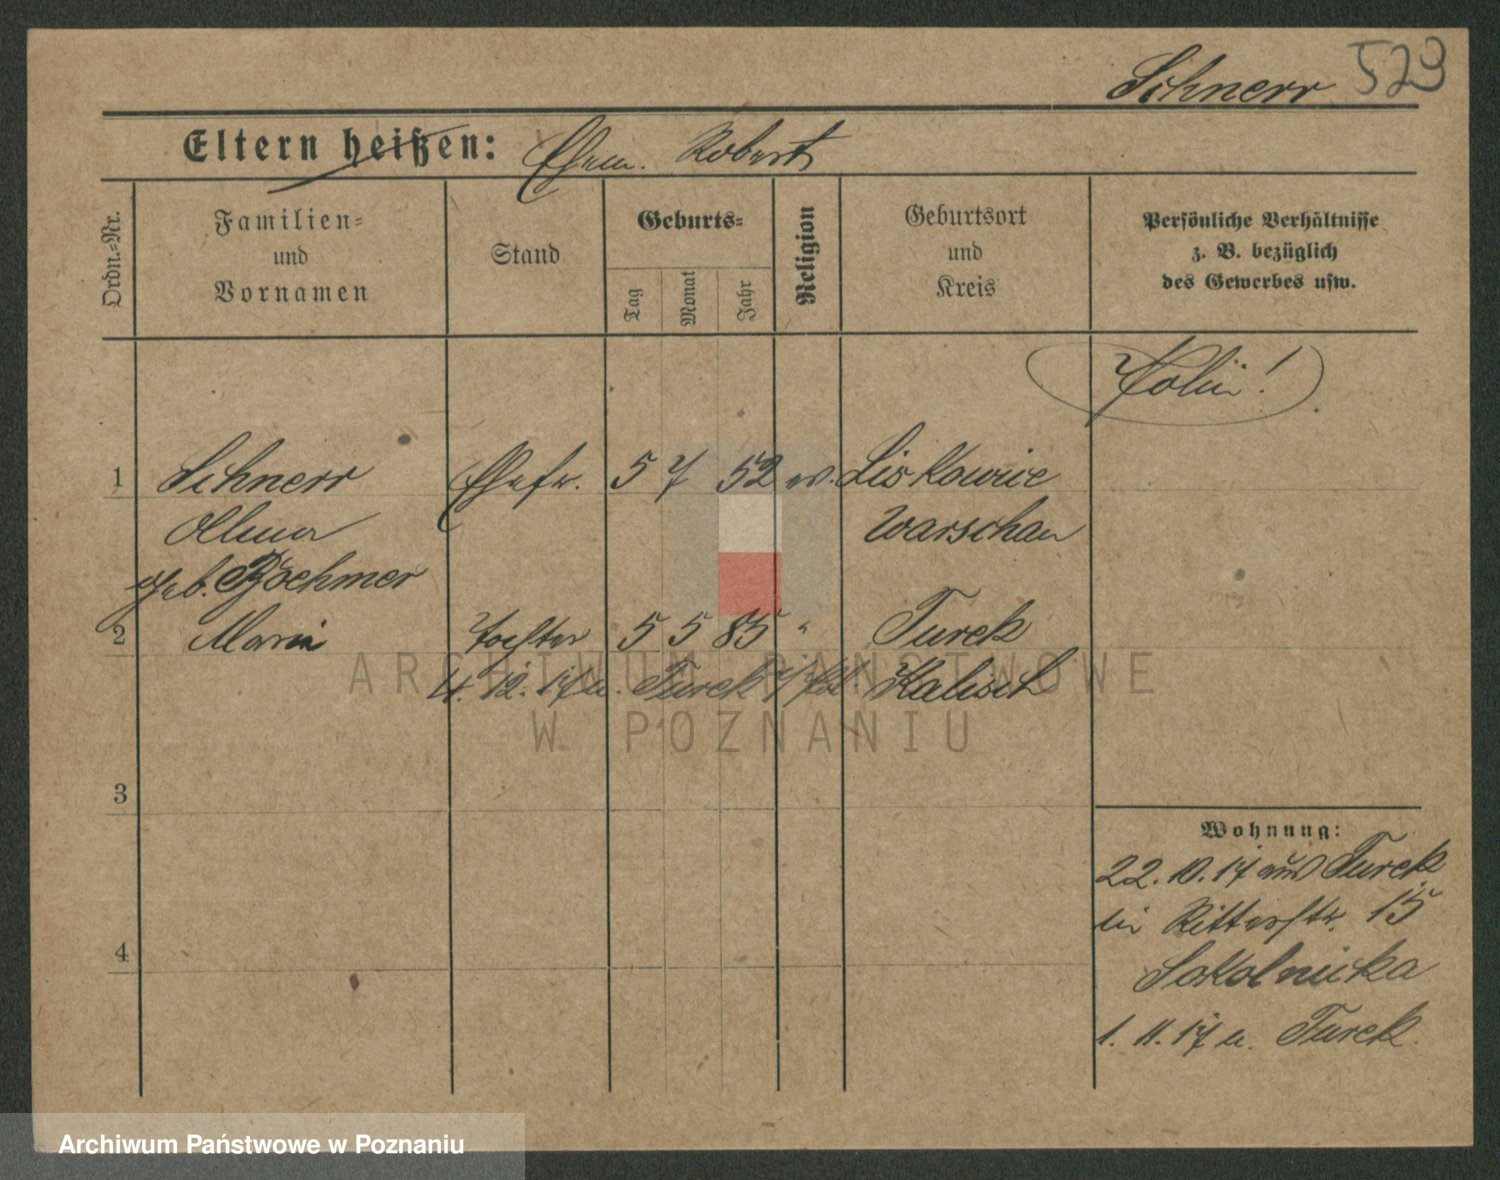 Schnerr 529
Eltern heißen: Ehem. Robert
Ordn.-Nr.
Familien-
und
Vornamen
Stand
Geburts-
Tag
Monat
Jahr
Religion
Geburtsort
und
Kreis
Persönliche Verhältnisse
z. B. bezüglich
des Gewerbes usw.
1 Schnerr Ehefr. 5 7 52 ev. Liskowice
Warschau
geb. Boehmer
2 Maria Tochter 5 5 85 " Turek
4. 12. 17 u. Turek Kalisch
3
4
Wohnung:
22. 10. 17 aus Turek
in Ritterstr. 15
Sokolnicka
1. 11. 17 u. Turek
ARCHIWUM PAŃSTWOWE
W POZNANIU
Archiwum Państwowe w Poznaniu